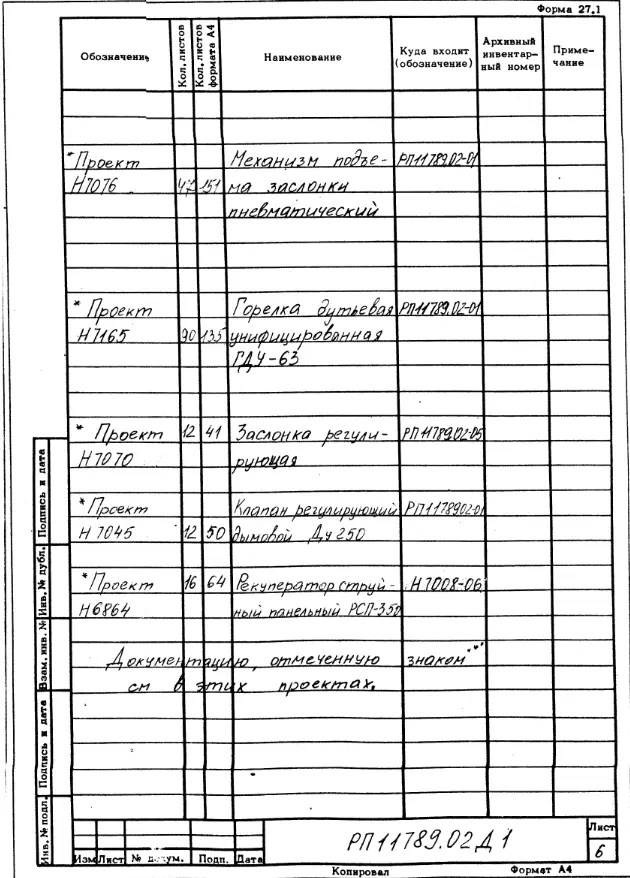 Форма 27.1
Обозначение Кол. листов Кол. листов формата А4 Наименование Куда входит (обозначение) Архивный инвентар-ный номер Приме-чание
*Проект Механизм подъе- РП11789.02-01
Н7076 47 151 ма заслонки
пневматический
* Проект Горелка дутьевая РП11789.02-01
Н7165 90 135 унифицированная
ГДУ-63
* Проект 12 41 Заслонка регули- РП11789.02-05
Н7070 рующая
*Проект Клапан регулирующий РП1178902-01
Н 7045 12 50 дымовой Ду250
*Проект 16 64 Рекуператор струй- Н7008-06
Н6864 ный панельный РСП-350
Документацию, отмеченную знаком "*"
см в этих проектах.
Подпись и дата
Инв. № дубл.
Взам. инв. №
Подпись и дата
Инв. № подл.
РП11789.02Д1
Лист
6
Изм Лист № докум. Подп. Дата
Копировал Формат А4